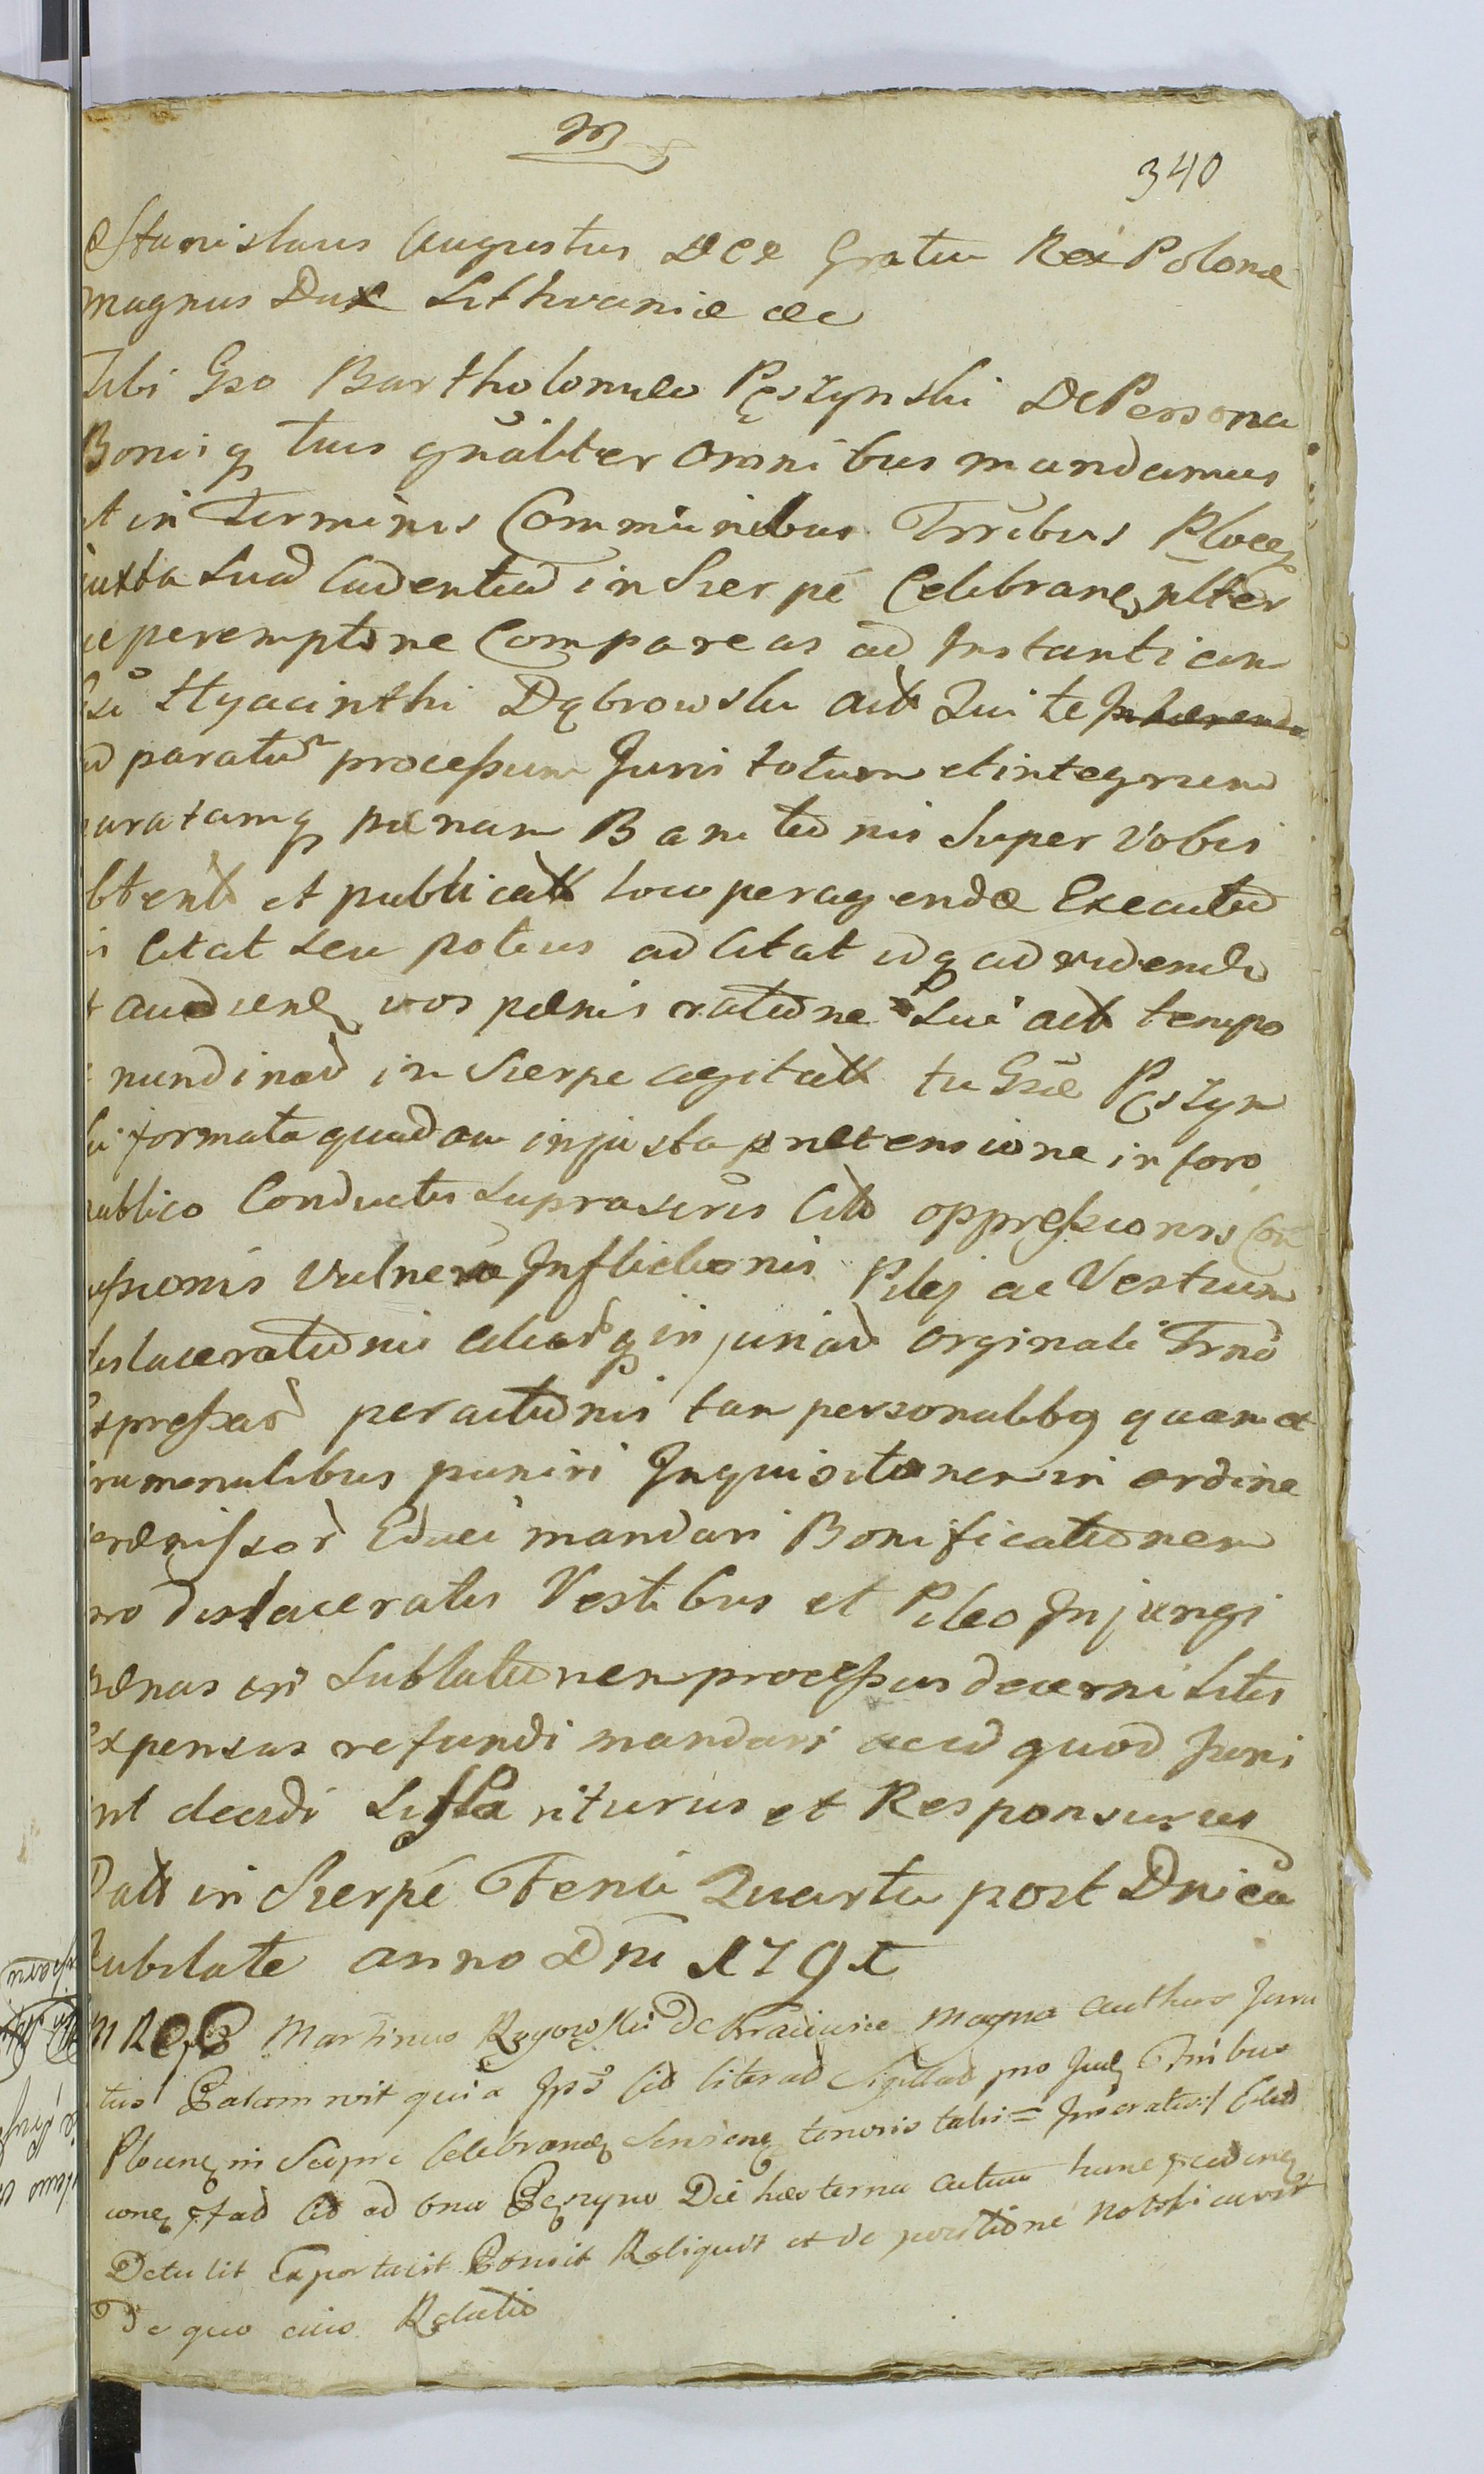 M
340
Stanislaus Augustus DEI Gratia Rex Polonæ
Magnus Dux Lithvaniæ &c
Tibi Gso Bartholomeo Pęszynski De Persona
Bonisq tuis gnãliter omnibus mandamus
ut in Terminis Communibus Trribus Plocen
juxta suã Cadentiã in Sierpc Celebranđ plter
ac peremptorie Compareas ad Instantiam
Gsi Hyacinthi Dąbrowski act Qui te Inhærendo
ad paratũ processum Juris totum et integrum
paratamq pænam Banitionis super Vobis
obtent et publicatt loco peragendæ Executio
nis Citat seu potius ad Citat idq ad videnđ
et audienđ vos pænis ratione Sui act tempo
re nundinarũ in Sierpc agitatt tu Gse Pęszyn
ski formata quadam injusta prætensione in foro
publico Conductis suprascriis Citt oppressionis Con
cussionis Vulnerũ Inflictionis Pilej ac Vestium
dislacerationis aliarũq injuriarũ Orginali Trno
Expressarũ peractionis tam personalibq quam et
crumenalibus puniri Inquisitionem in ordine
præmissorũ Educi mandari Bonificationem
pro dislaceratis Vestibus et Pileo Injungi
pænas in Sublationem processus decerni Litis
Expensas refundi mandari ac id quod Juris
erit decidi Lissta riturus et Responsurus
Datt in Sierpc Feria Quarta post Dnicã
Jubilate anno Dni 1791
Martinus Rogowski De Kraiewice Magna Author Jura
tus Palam rvit quia Ips Cit literað Sigillað pro Juđ Trribus
Plocenđ in Sierpc Celebranđ tenoris talis = Inseratur /
ionẽ ad Citt ad bna Pęszyno Die hesterna actum hunc præcedenđ
Detulit Exportavit Posuit Reliquit et de positione Notificavit
De quo eius Relatio